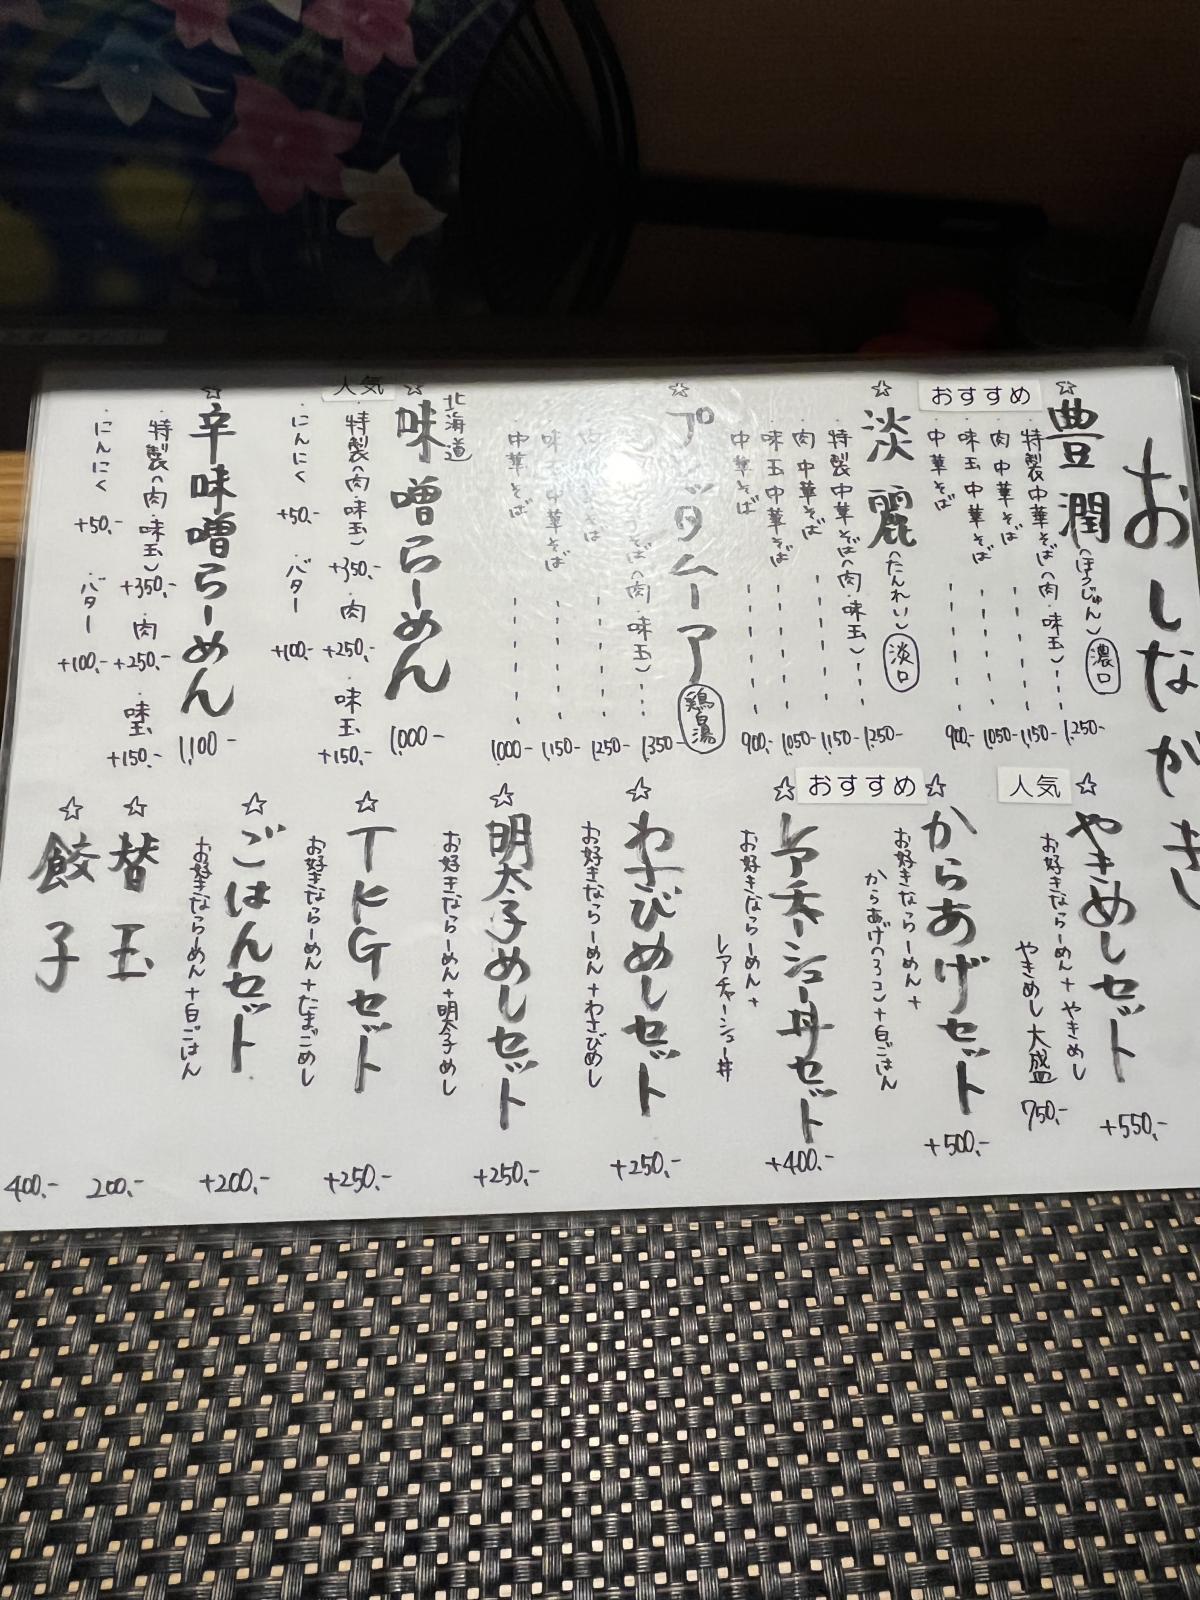 おしながき
おすすめ
☆豊潤(ほうじゅん) 濃口
・特製中華そば(肉・味玉) 1,250-
・肉中華そば 1,150-
・味玉中華そば 1,050-
・中華そば 900.-
☆淡麗(たんれい) 淡口
・特製中華そば(肉・味玉) 1,250-
・肉中華そば 1,150-
・味玉中華そば 1,050-
・中華そば 900.-
☆プッタムーア 鶏白湯
そば(肉・味玉) 1,350-
そば 1,250-
味玉中華そば 1,150-
・中華そば 1,000-
人気
☆北海道味噌らーめん 1,000-
・特製(肉・味玉) +350.- ・肉 +250.- ・味玉 +150.-
・にんにく +50.- ・バター +100.-
☆辛味噌らーめん 1,100-
・特製(肉・味玉) +350.- ・肉 +250.- ・味玉 +150.-
・にんにく +50.- ・バター +100.-
人気
☆やきめしセット +550.-
お好きならーめん+やきめし
やきめし大盛 750.-
おすすめ
☆からあげセット +500.-
お好きならーめん+
からあげ(3コ)+白ごはん
☆レアチャーシュー丼セット +400.-
お好きならーめん+
レアチャーシュー丼
☆わさびめしセット +250.-
お好きならーめん+わさびめし
☆明太子めしセット +250.-
お好きならーめん+明太子めし
☆TKGセット +250.-
お好きならーめん+たまごめし
☆ごはんセット +200.-
お好きならーめん+白ごはん
☆替玉 200.-
☆餃子 400.-